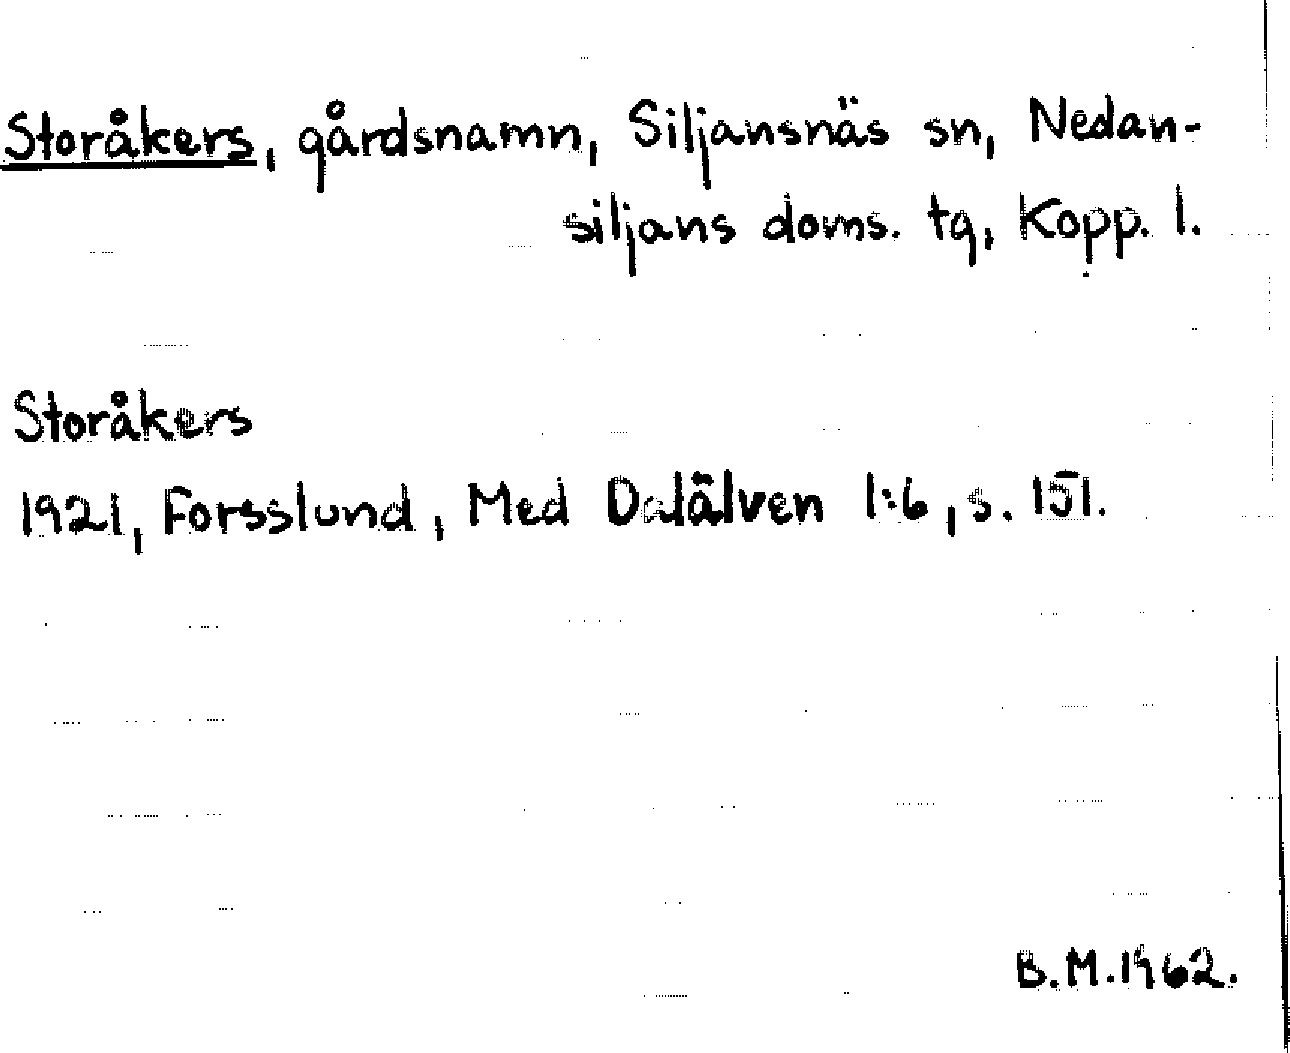 Storåkers, gårdsnamn, Siljansnäs sn, Nedan-
siljans doms. tg, Kopp. l.
Storåkers
1921, Forsslund, Med Dalälven 1:6, s. 151.
B.M.1962.